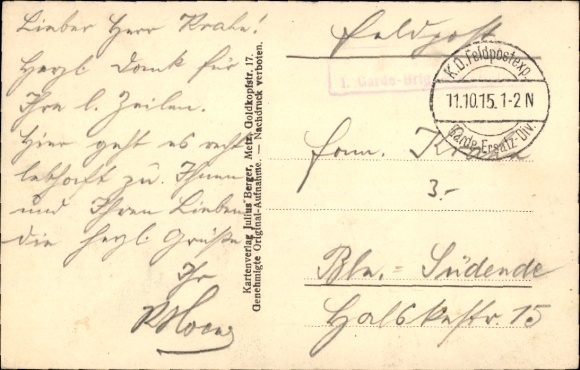 Lieber Herr Krahn!
Herzl. Dank für
Ihre l. Zeilen.
Hier geht es recht
lebhaft zu. Ihnen
und Ihren Lieben
die herzl. Grüße
Ihr
Kartenverlag Julius Berger, Metz, Goldkopfstr. 17.
Genehmigte Original-Aufnahme. — Nachdruck verboten.
Feldpost
1. Garde-Brig
K.D. Feldpostexp.
11.10.15. 1-2 N
Garde-Ersatz-Div.
3.-
Bln.-Südende
Halskestr. 15